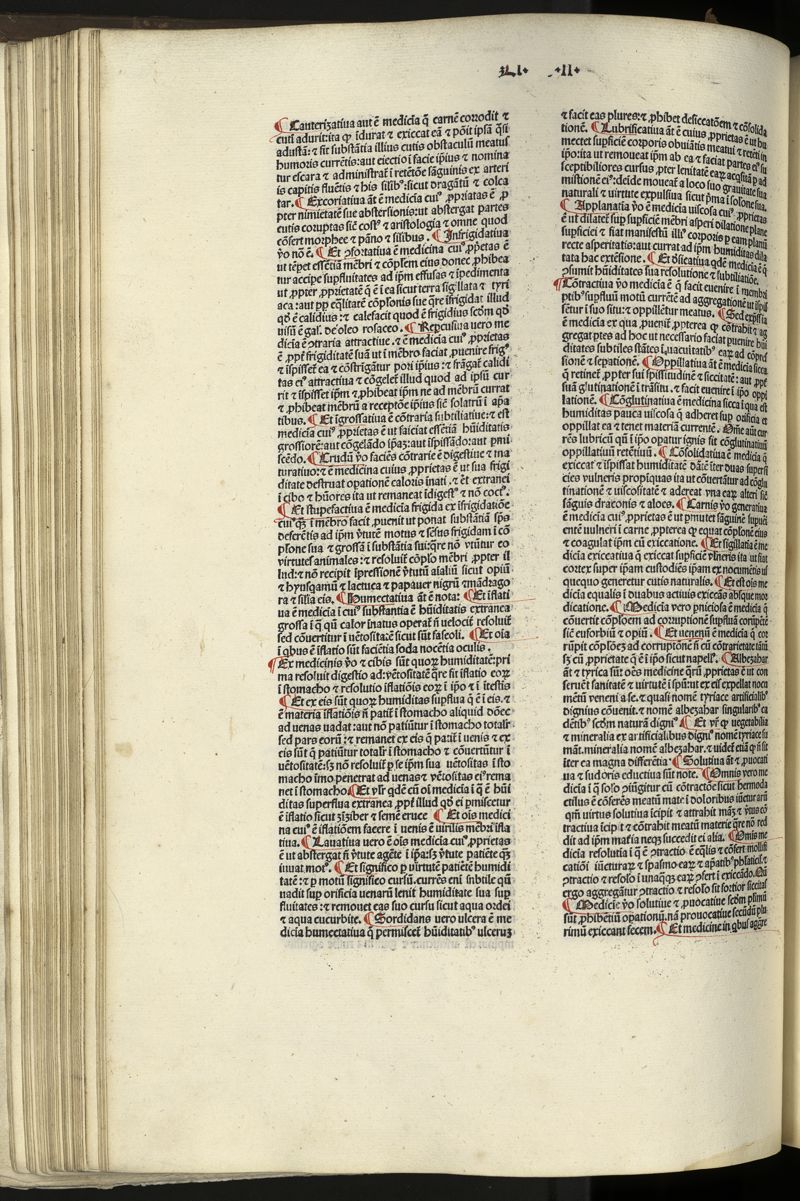 LI. .II.
¶ Cauterizatiua aut ē medicia q̄ carnē corrodit ⁊
cutī adurit: ita qp̄ īdurat ⁊ exiccat eā ⁊ pōit ipsā q̄si
adustā: ⁊ fit substātia illius cutis obstaculū meatus
humoris currētis: aut eiectiōi facie ipius ⁊ nomina
tur escara ⁊ administrat̄ i retētōe sāguinis ex arteri
is capitis fluētis ⁊ his silibꝰ: sicut dragātū ⁊ colca
tar. ¶ Excoriatiua āt ē medicia cuiꝰ ꝓpriatas ē ꝓ
pter nimietatē sue abstersionis: ut abstergat partes
cutis coruptas siē costꝰ ⁊ aristologia ⁊ omne quod
cōfert morphee ⁊ pāno ⁊ silibus. ¶ Infrigidatiua
ꝟo nō ē. ¶ Et ꝯfortatiua ē medicina cuiꝰ ꝓpetas ē
ut tēpet essētiā mēbri ⁊ cōplem eius donec ꝓhibea
tur accipe supfluitates ad ipm effusas ⁊ ipedimenta
ut ꝓpter ꝓprietatē q̄ ē i ea sicut terra sigillata ⁊ tyri
aca: aut ꝓp eq̄litatē cōplonis sue q̄re ifrigidat illud
qd̄ ē calidius: ⁊ calefacit quod ē frigidius scdm qd̄
uisū ē gal. de oleo rosaceo. ¶ Repcussiua uero me
dicia ē ꝯtraria attractiue. ⁊ ē medicia cuiꝰ ꝓprietas
ē ꝓpt̄ frigiditatē suā ut i mēbro faciat ꝓuenire frigꝰ
⁊ ispisset ea ⁊ cōstrīgātur pori ipius: ⁊ frāgat̄ calidi
tas eiꝰ attractiua ⁊ cōgelet̄ illud quod ad ipsū cur
rit ⁊ ispisset ipm ⁊ ꝓhibeat ipm ne ad mēbrū currat
⁊ ꝓhibeat mēbrū a receptōe ipius siē solatrū i apa
tibus. ¶ Et igrossatiua ē cōtraria subtiliatiue: ⁊ est
medicia cuiꝰ ꝓprietas ē ut faiciat essētiā hūiditatis
grossiorē: aut cōgelādo ipaz: aut ispissādo: aut pmi
scēdo. ¶ Crudū ꝟo faciēs cōtrarie ē digestiue ⁊ ma
turatiuo: ⁊ ē medicina cuius ꝓprietas ē ut sua frigi
ditate destruat opationē caloris inati. ⁊ ēt extranei
i cibo ⁊ hūores ita ut remaneat idigestꝰ ⁊ nō coctꝰ.
¶ Et stupefactiua ē medicia frigida ex ifrigidatiōe
cuiꝰ qz i mēbro facit ꝓuenit ut ponat substātiā spūs
deferētis ad ipm ꝟtutē motus ⁊ sēsus frigidam i cō
plone sua ⁊ grossā i substātia sui: q̄re nō ꝟtūtur eo
virtutes animales: ⁊ resoluit̄ cōplo mēbri ꝓpter il
lud: ⁊ nō recipit ipressionē ꝟtutū aialiū sicut opiū
⁊ hyusqamū ⁊ lactuca ⁊ papauer nigrū ⁊ mādrago
ra ⁊ silia eis. ¶ Humectatiua āt ē nota: ¶ Et iflati
ua ē medicia i cuiꝰ substantia ē hūiditatis extranea
grossa i q̄ qn̄ calor inatus operat̄ n̄ uelocit̄ resoluit̄
sed cōuertitur i uētosita: ē sicut sūt faseoli. ¶ Et oīa
i q̄bus ē iflatio sūt faciētia soda nocētia oculis.
¶ Ex medicinis ꝟo ⁊ cibis sūt quorꝝ humiditatē: pri
ma resoluit digestio ad: uētositatē q̄re fit iflatio eorꝝ
i stomacho ⁊ resolutio iflatiōis eorꝝ i ipo ⁊ i itestis
¶ Et ex eis sūt quorꝝ humiditas supflua q̄ ē i eis. ⁊
ē materia iflatiōis n̄ patit̄ i stomacho aliquid donec
ad uenas uadat: aut nō patiūtur i stomacho totalr̄
sed pars eorū: ⁊ remanet ex eis q̄ patit̄ i uenis ⁊ ex
eis sūt q̄ patiūtur totalr̄ i stomacho ⁊ cōuertūtur i
uētositatē: sz nō resoluit̄ p se ipm sua uētositas i sto
macho imo penetrat ad uenas ⁊ uētositas eiꝰ rema
net i stomacho ¶ Et ylr̄ qdē cū oī medicia i q̄ ē hūi
ditas superflua extranea ꝓpt̄ illud qd̄ ei pmiscetur
ē iflatio sicut zīziber ⁊ semē eruce ¶ Et oīs medici
na cuiꝰ ē iflatiōem facere i uenis ē virilis mēbri ifla
tiua. ¶ Lauatiua uero ē oīs medicia cuiꝰ ꝓprietas
ē ut abstergat n̄ ꝟtute agēte i ipa: sz ꝟtute patiēte qz
iuuat motꝰ. ¶ Et significo p virtutē patiētē humidi
tatē: ⁊ p motū significo cursū. currēs eni subtile qn̄
uadit sup orificia uenarū lenit humiditate sua sup
fluitates: ⁊ remouet eas suo cursu sicut aqua ordei
⁊ aqua cucurbite. ¶ Sordidans uero ulcera ē me
dicia humectatiua q̄ permiscet̄ hūiditatibꝰ ulcerꝝ
⁊ facit eas plures: ⁊ ꝓhibet desiccatōem ⁊ cōsolida
tionē. ¶ Lubrificatiua āt ē cuius ꝓprietas ē ut hu
mectet supficiē corporis obuiātis meatui ⁊ retēti in
ipo: ita ut remoueat ipm ab ea ⁊ faciat partes eiꝰ su
sceptibiliores cursus ꝓpter lenitatē earꝝ acq̄sitā p ad
mistionē eiꝰ: deīde moueat̄ a loco suo grauitate sua
naturali ⁊ uirtute expulsiua sicut pruna i solone sua.
¶ Applanatia ꝟo ē medicia uiscosa cuiꝰ ꝓprietas
ē ut dilatet̄ sup supficiē mēbri asperi dilatione plane
supficiei ⁊ fiat manifestū illiꝰ corporis p eam planū
recte asperitatis: aut currat ad ipm humiditas dila
tata hac extēsione. ¶ Et desiccatiua qdē medicia ē q̄
ꝯsumit hūiditates sua resolutione ⁊ subtiliatiōe.
¶ Cōtractiua ꝟo medicia ē q̄ facit euenire i membri
ptibꝰ supfluū motū currētē ad aggregationē ut ipis
setur i suo situ: ⁊ oppilētur meatus. ¶ Sed expressiua
ē medicia ex qua ꝓuenit̄ ꝓpterea qp̄ cōtrahit ⁊ ag
gregat ptes ad hoc ut necessario faciat ꝓuenire hūi
ditates subtiles stātes i uacuitatibꝰ earꝝ ad cōpres
sionē ⁊ sepationē. ¶ Oppilatiua āt ē medicia sicca
q̄ retinet̄ ꝓpter sui spissitudinē ⁊ siccitatē: aut ꝓpt̄
suā glutinationē i trāsitu. ⁊ facit euenire i ipo oppi
lationē. ¶ Cōglutinatiua ē medicina sicca i qua est
humiditas pauca uiscosa q̄ adheret sup orificia et
oppillat ea ⁊ tenet materiā currentē. Om̄e aūt cur
rēs lubricū qn̄ i ipo opatur ignis fit cōglutinatiuū
oppillatiuū retētiuū. ¶ Cōsolidatiua ē medicia q̄
exiccat ⁊ ispissat humiditatē datē iter duas superfi
cies vulneris propīquas ita ut cōuertātur ad cōglu
tinationē ⁊ uiscositatē ⁊ adereat vna earꝝ alteri siē
sāguis draconis ⁊ aloes. ¶ Carnis ꝟo generatiua
ē medicia cuiꝰ ꝓprietas ē ut pmutet sāguinē supuei
entē vulneri i carnē. ꝓpterea qp̄ equat cōplonē eius
⁊ coagulat ipm cū exiccatione. ¶ Et sigillatia ē me
dicia exiccatiua q̄ exiccat supficiē ꝟlneris ita ut fiat
cortex super ipam custodiēs ipam ex nocumētis us
quequo generetur cutis naturalis. ¶ Et est oīs me
dicia equalis i duabus actiuis exiccās absque mor
dicatione. ¶ Medicia vero pniciosa ē medicia q̄
cōuertit cōploem ad corruptionē supfluā corūpētē
siē euforbiū ⁊ opiū. ¶ Et uenenū ē medicia q̄ cor
rūpit cōplonē ad corruptionē n̄ cū cōtrarietate tātū
sz cū ꝓprietate q̄ ē i ipo sicut napellꝰ. ¶ Albezahar
āt ⁊ tyrica sūt: oēs medicine q̄rū ꝓprietas ē ut con
seruēt sanitatē ⁊ uirtutē i spū: ut ex eis expellat nocu
mētū veneni a se. ⁊ quasi nomē tyriace artificialibꝰ
dignius cōuenit. ⁊ nomē albezahar singularibꝰ ca
dētibꝰ scdm naturā dignꝰ ¶ Et ꝟr̄ qp̄ uegetabilia
⁊ mineralia ex artificialibus dignꝰ nomē tyriace su
māt. mineralia nomē albezhar. ⁊ uidet̄ etiā qp̄ n̄ sit
iter ea magna differētia ¶ Solutiua āt ⁊ ꝓuocati
ua ⁊ sudoris eductiua sūt note. ¶ Omnis vero me
dicia i q̄ solo ꝯiūgitur cū cōtractōe sicut hermoda
ctilus ē cōferēs meatū mate i doloribus iūcturarū
qm̄ uirtus solutiua īcipit ⁊ attrahit māz ⁊ ꝟtus cō
tractiua īcipit ⁊ cōtrahit meatū materie q̄re nō red
dit ad ipm māia neqz succedit ei alia. ¶ Omnis me
dicia resolutia i q̄ ē ꝯtractio ē eq̄lis ⁊ cōfert mollifi
cationi iūcturarꝝ ⁊ spasmo earꝝ ⁊ apatibꝰ phlaticꝰ. ⁊
ꝯtractio ⁊ resolō i unaq̄qz earꝝ ꝯfert i exiccādo. Qn̄
ergo aggregātur ꝯtractio ⁊ resolō fit fortior siccitas
¶ Medicie ꝟo solutiue ⁊ ꝓuocatiue scdm plimū
sūt ꝓhibētiū opationū. nā prouocatiue secūdū plu
rimū exiccant fecem. ¶ Et medicine in q̄bus aggre